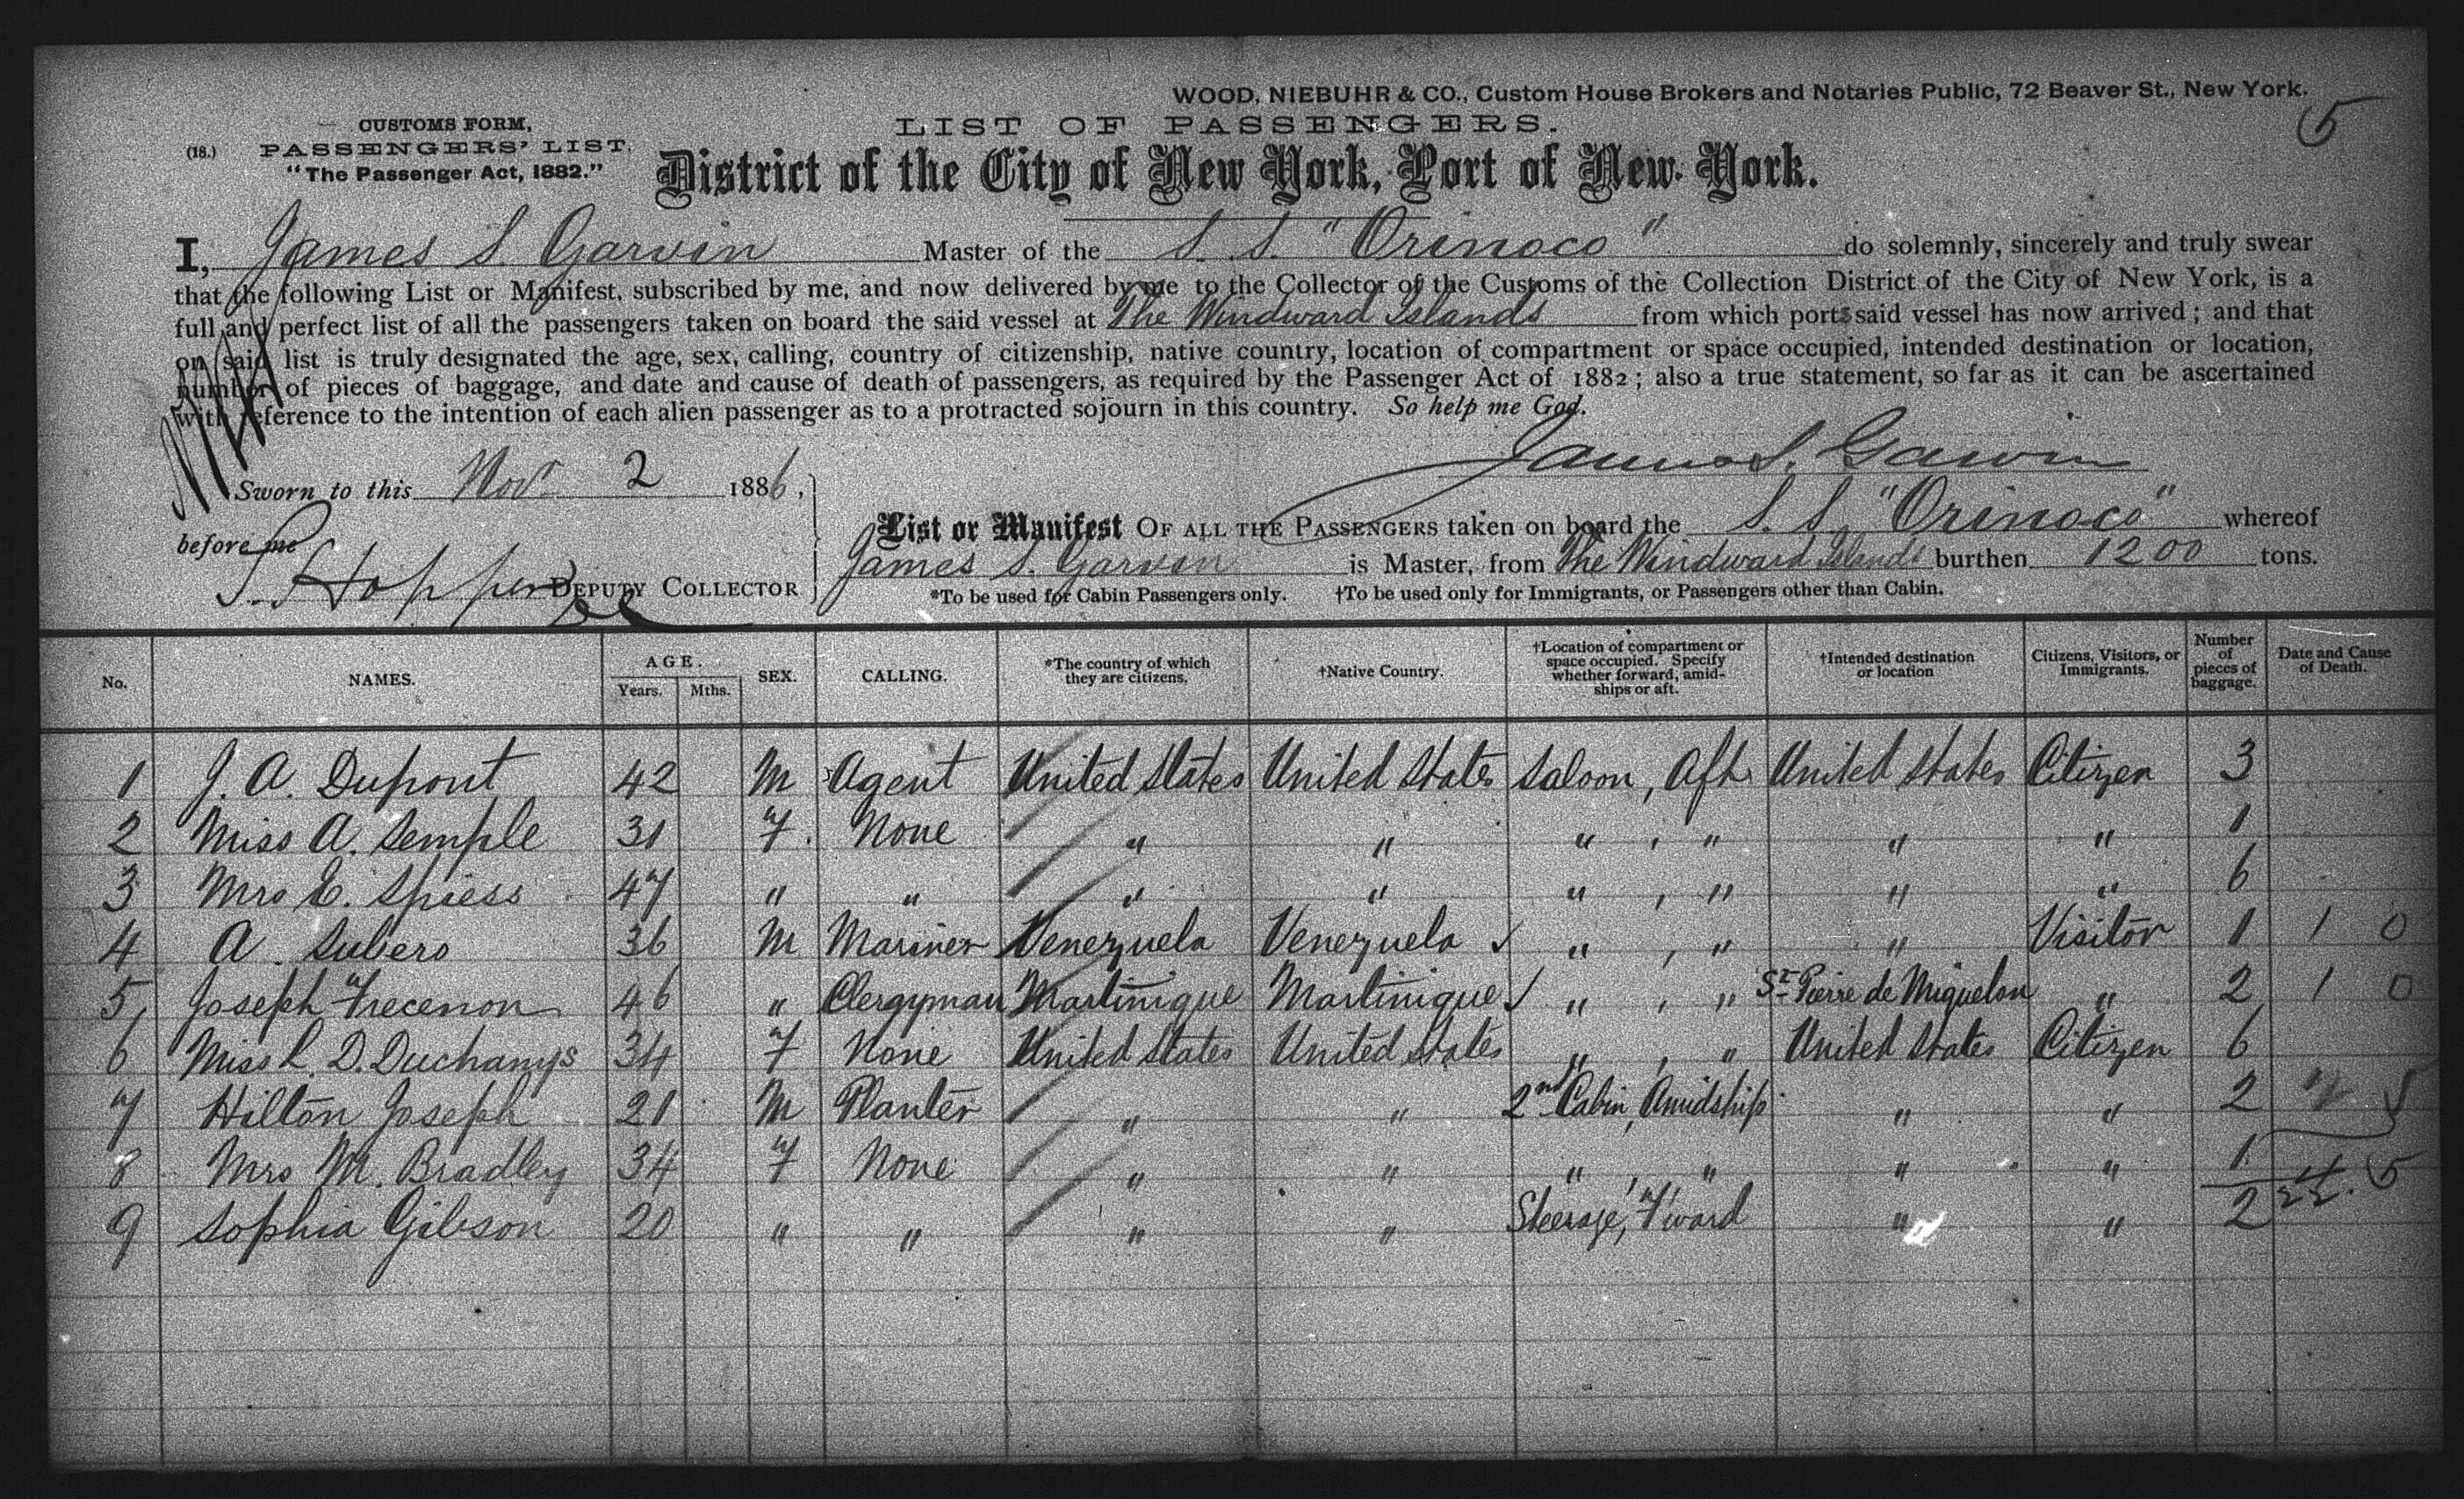 WOOD, NIEBUHR & CO., Custom House Brokers and Notaries Public, 72 Beaver St., New York.
5
(18.) CUSTOMS FORM,
PASSENGERS' LIST.
"The Passenger Act, 1882."
LIST OF PASSENGERS.
District of the City of New York, Port of New York.
I, James S. Garvin Master of the S. S. "Orinoco" do solemnly, sincerely and truly swear
that the following List or Manifest, subscribed by me, and now delivered by me to the Collector of the Customs of the Collection District of the City of New York, is a
full and perfect list of all the passengers taken on board the said vessel at The Windward Islands from which ports said vessel has now arrived; and that
on said list is truly designated the age, sex, calling, country of citizenship, native country, location of compartment or space occupied, intended destination or location,
number of pieces of baggage, and date and cause of death of passengers, as required by the Passenger Act of 1882; also a true statement, so far as it can be ascertained
with reference to the intention of each alien passenger as to a protracted sojourn in this country. So help me God.
James S. Garvin
Sworn to this Nov. 2 1886,
before me
Hopper DEPUTY COLLECTOR
List or Manifest OF ALL THE PASSENGERS taken on board the S. S. "Orinoco" whereof
James S. Garvin is Master, from The Windward Islands burthen 1200 tons.
*To be used for Cabin Passengers only. †To be used only for Immigrants, or Passengers other than Cabin.
No. NAMES. AGE. Years. Mths. SEX. CALLING. *The country of which they are citizens. †Native Country. †Location of compartment or space occupied. Specify whether forward, amidships or aft. †Intended destination or location Citizens, Visitors, or Immigrants. Number of pieces of baggage. Date and Cause of Death.
1 J. A. Dupont 42 M Agent United States United States Saloon, Aft United States Citizen 3
2 Miss A. Semple 31 F. None " " " , " " " 1
3 Mrs E. Spiess 47 " " " " " , " " " 6
4 A. Subero 36 M Mariner Venezuela Venezuela ✓ " , " " Visitor 1 1 0
5 Joseph Frecenon 46 " Clergyman Martinique Martinique ✓ " , " St. Pierre de Miquelon " 2 1 0
6 Miss L. D. Duchamps 34 F None United States United States " , " United States Citizen 6
7 Hilton Joseph 21 M Planter " " 2nd Cabin, Amidship " " 2
8 Mrs M. Bradley 34 F None " " " , " " " 1
9 Sophia Gibson 20 " " " " Steerage, F'ward " " 2